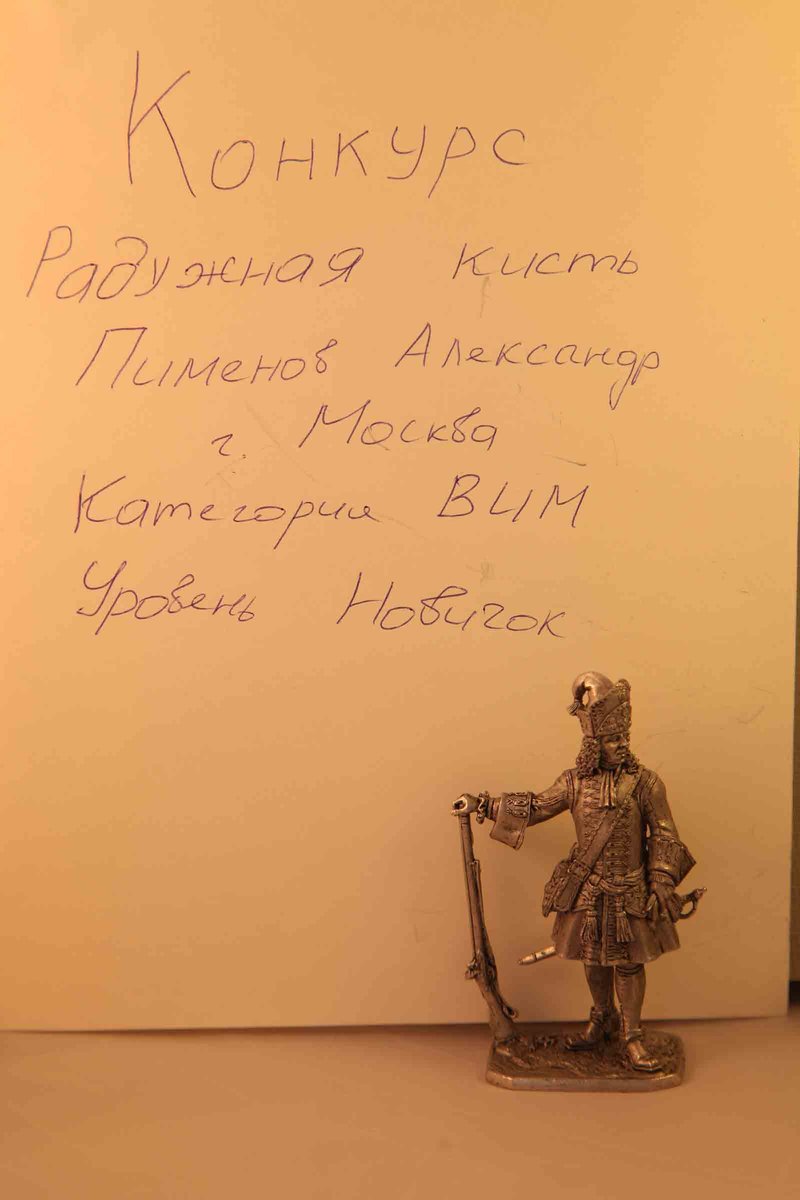 Конкурс
Радужная кисть
Пименов Александр
г. Москва
Категория ВИМ
Уровень Новичок